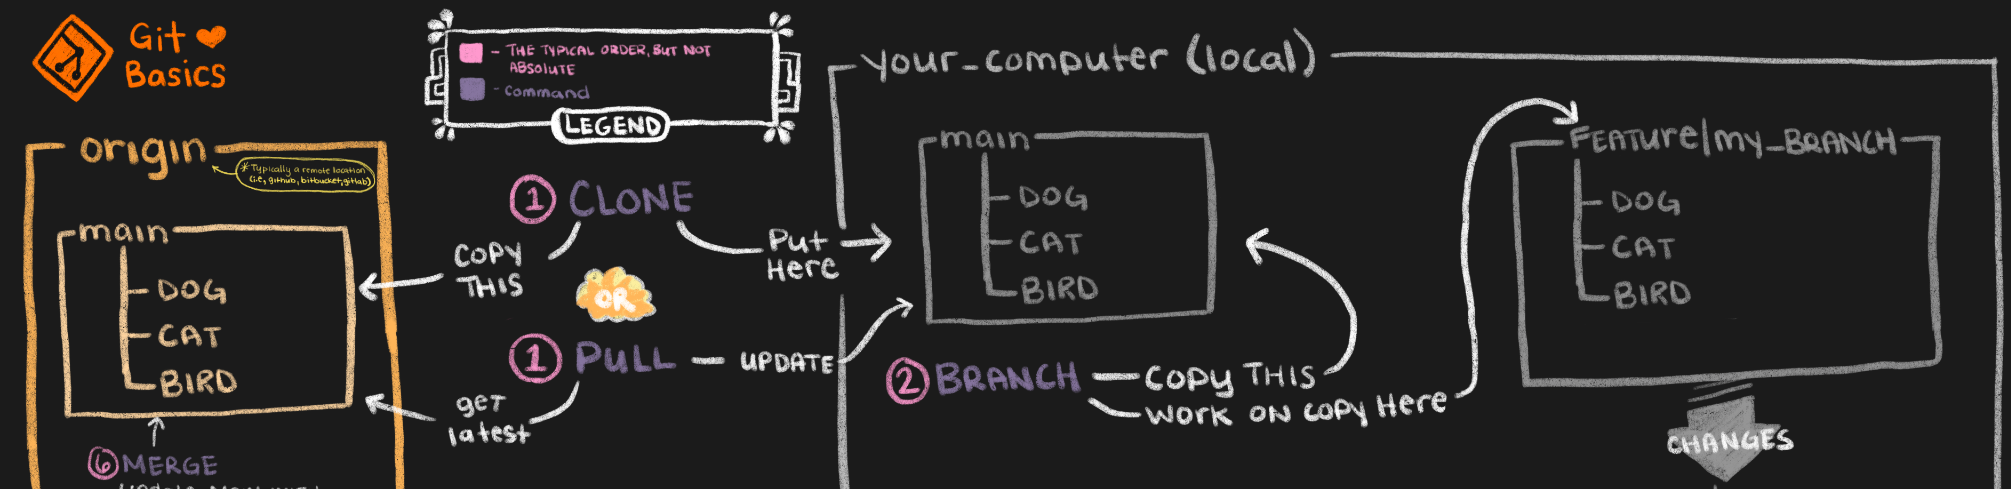 Git ❤
Basics
- THE TYPICAL ORDER, BUT NOT
ABSOLUTE
- Command
LEGEND
origin
* Typically a remote location
(i.e, github, bitbucket, gitlab)
main
DOG
CAT
BIRD
6 MERGE
1 CLONE
COPY
THIS
Put
Here
OR
1 PULL
UPDATE
get
latest
your_computer (local)
main
DOG
CAT
BIRD
2 BRANCH
COPY THIS
WORK ON COPY Here
FEATURE/my_BRANCH
DOG
CAT
BIRD
CHANGES